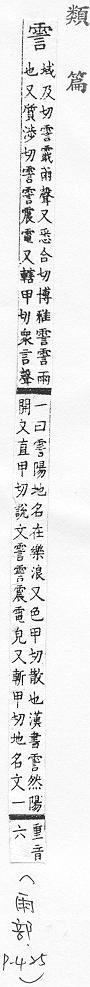 類篇
霅
域及切霅霵雨聲又悉合切博雅霅霅雨
也又質涉切霅霅震電又轄甲切衆言聲
一曰霅陽地名在樂浪又色甲切散也漢書霅然陽
開又直甲切說文霅霅震電皃又斬甲切地名文一
重音
六
(雨部.
P.425)